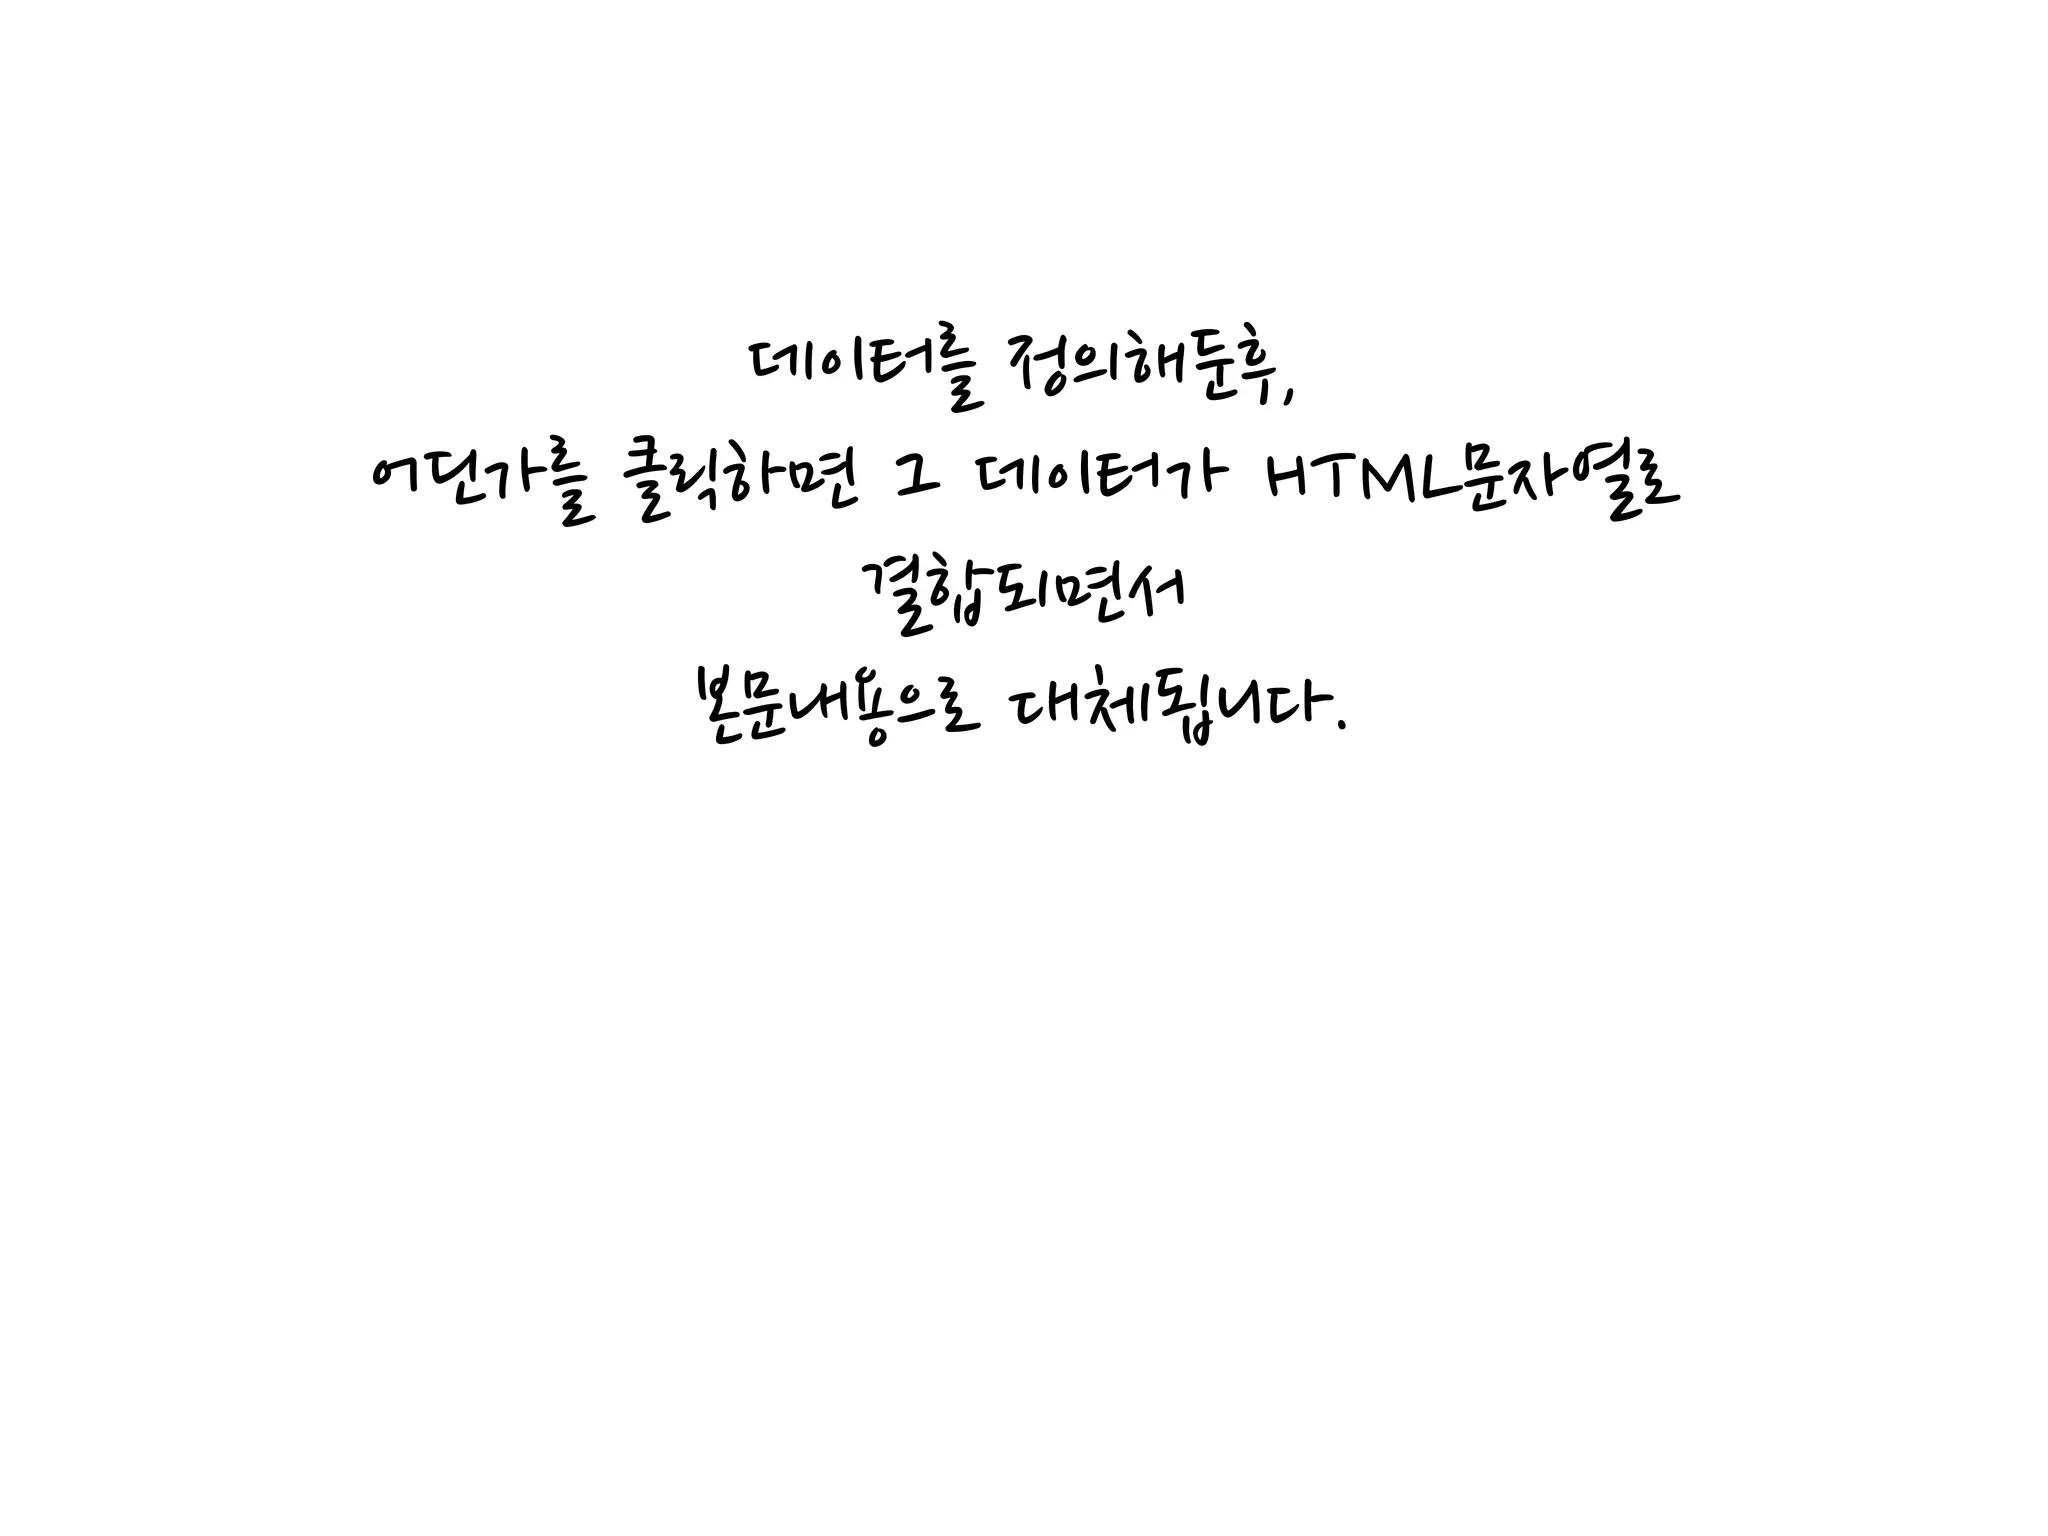 데이터를 정의해둔후,
어딘가를 클릭하면 그 데이터가 HTML문자열로
결합되면서
본문내용으로 대체됩니다.